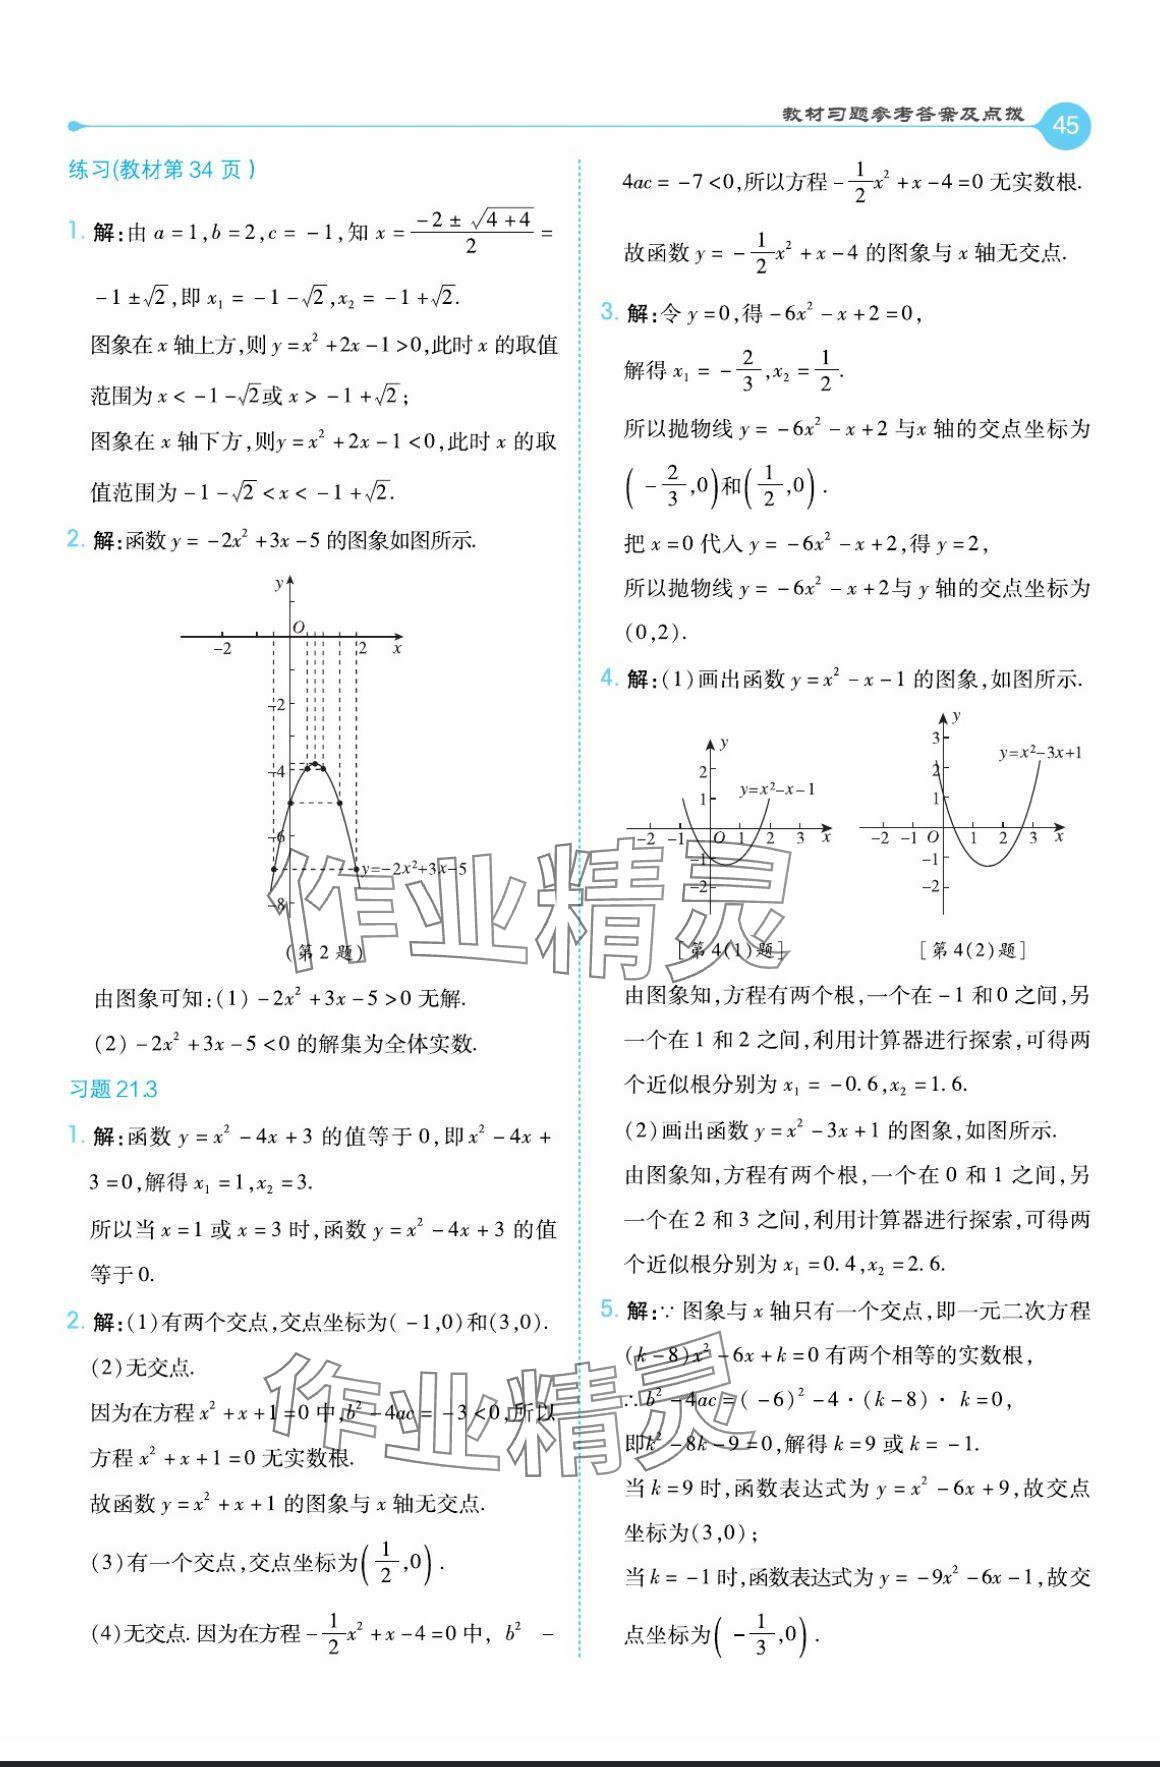 教材习题参考答案及点拨
45
练习(教材第 34 页)
1. 解:由 a=1,b=2,c=-1,知 x=\frac{-2±√(4+4)}{2}=
-1±√2,即 x₁=-1-√2,x₂=-1+√2.
图象在 x 轴上方,则 y=x²+2x-1>0,此时 x 的取值
范围为 x<-1-√2或 x>-1+√2;
图象在 x 轴下方,则y=x²+2x-1<0,此时 x 的取
值范围为-1-√2<x<-1+√2.
2. 解:函数 y=-2x²+3x-5 的图象如图所示.
y
O
-2
2
x
-2
-4
-6
-8
y=-2x²+3x-5
(第 2 题)
由图象可知:(1)-2x²+3x-5>0 无解.
(2)-2x²+3x-5<0 的解集为全体实数.
习题 21.3
1. 解:函数 y=x²-4x+3 的值等于 0,即 x²-4x+
3=0,解得 x₁=1,x₂=3.
所以当 x=1 或 x=3 时,函数 y=x²-4x+3 的值
等于 0.
2. 解:(1)有两个交点,交点坐标为(-1,0)和(3,0).
(2)无交点.
因为在方程 x²+x+1=0 中,b²-4ac=-3<0,所以
方程 x²+x+1=0 无实数根.
故函数 y=x²+x+1 的图象与 x 轴无交点.
(3)有一个交点,交点坐标为(\frac{1}{2},0).
(4)无交点. 因为在方程-\frac{1}{2}x²+x-4=0 中, b²-
4ac=-7<0,所以方程-\frac{1}{2}x²+x-4=0 无实数根.
故函数 y=-\frac{1}{2}x²+x-4 的图象与 x 轴无交点.
3. 解:令 y=0,得-6x²-x+2=0,
解得 x₁=-\frac{2}{3},x₂=\frac{1}{2}.
所以抛物线 y=-6x²-x+2 与x 轴的交点坐标为
(-\frac{2}{3},0)和(\frac{1}{2},0).
把 x=0 代入 y=-6x²-x+2,得 y=2,
所以抛物线 y=-6x²-x+2与 y 轴的交点坐标为
(0,2).
4. 解:(1)画出函数 y=x²-x-1 的图象,如图所示.
y
2
1
y=x²-x-1
-2 -1 O 1 2 3 x
-1
-2
[第 4(1)题]
y
3
2
1
y=x²-3x+1
-2 -1 O 1 2 3 x
-1
-2
[第 4(2)题]
由图象知,方程有两个根,一个在-1 和0 之间,另
一个在 1 和 2 之间,利用计算器进行探索,可得两
个近似根分别为 x₁=-0.6,x₂=1.6.
(2)画出函数 y=x²-3x+1 的图象,如图所示.
由图象知,方程有两个根,一个在 0 和 1 之间,另
一个在 2 和 3 之间,利用计算器进行探索,可得两
个近似根分别为 x₁=0.4,x₂=2.6.
5. 解:∵ 图象与 x 轴只有一个交点,即一元二次方程
(k-8)x²-6x+k=0 有两个相等的实数根,
∴b²-4ac=(-6)²-4·(k-8)·k=0,
即k²-8k-9=0,解得 k=9 或 k=-1.
当 k=9 时,函数表达式为 y=x²-6x+9,故交点
坐标为(3,0);
当 k=-1 时,函数表达式为 y=-9x²-6x-1,故交
点坐标为(-\frac{1}{3},0).
作业精灵
作业精灵